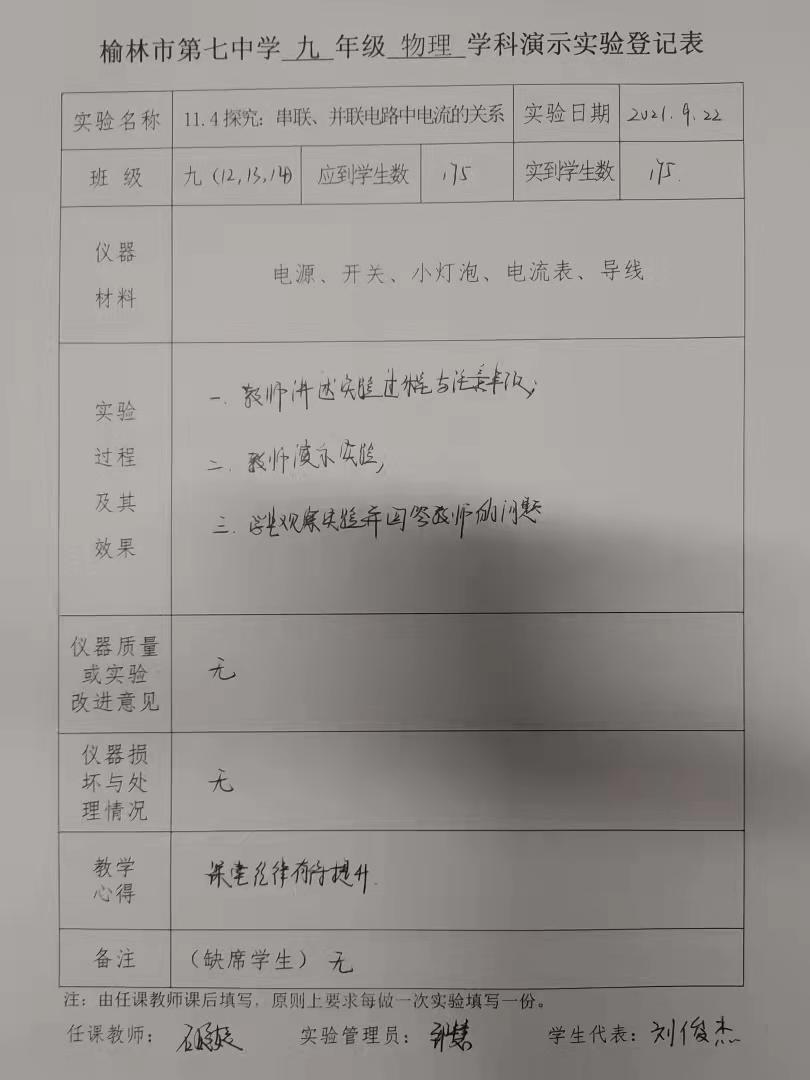 榆林市第七中学 九 年级 物理 学科演示实验登记表
实验名称 11.4探究：串联、并联电路中电流的关系 实验日期 2021.9.22
班 级 九（12,13,14） 应到学生数 175 实到学生数 175.
仪器
材料
电源、开关、小灯泡、电流表、导线
实验
过程
及其
效果
一、教师讲述实验过程与注意事项；
二、教师演示实验，
三、学生观察实验并回答教师的问题
仪器质量
或实验
改进意见
无
仪器损
坏与处
理情况
无
教学
心得
课堂纪律有待提升.
备注 （缺席学生）无
注：由任课教师课后填写，原则上要求每做一次实验填写一份。
任课教师： 实验管理员： 学生代表：刘俊杰